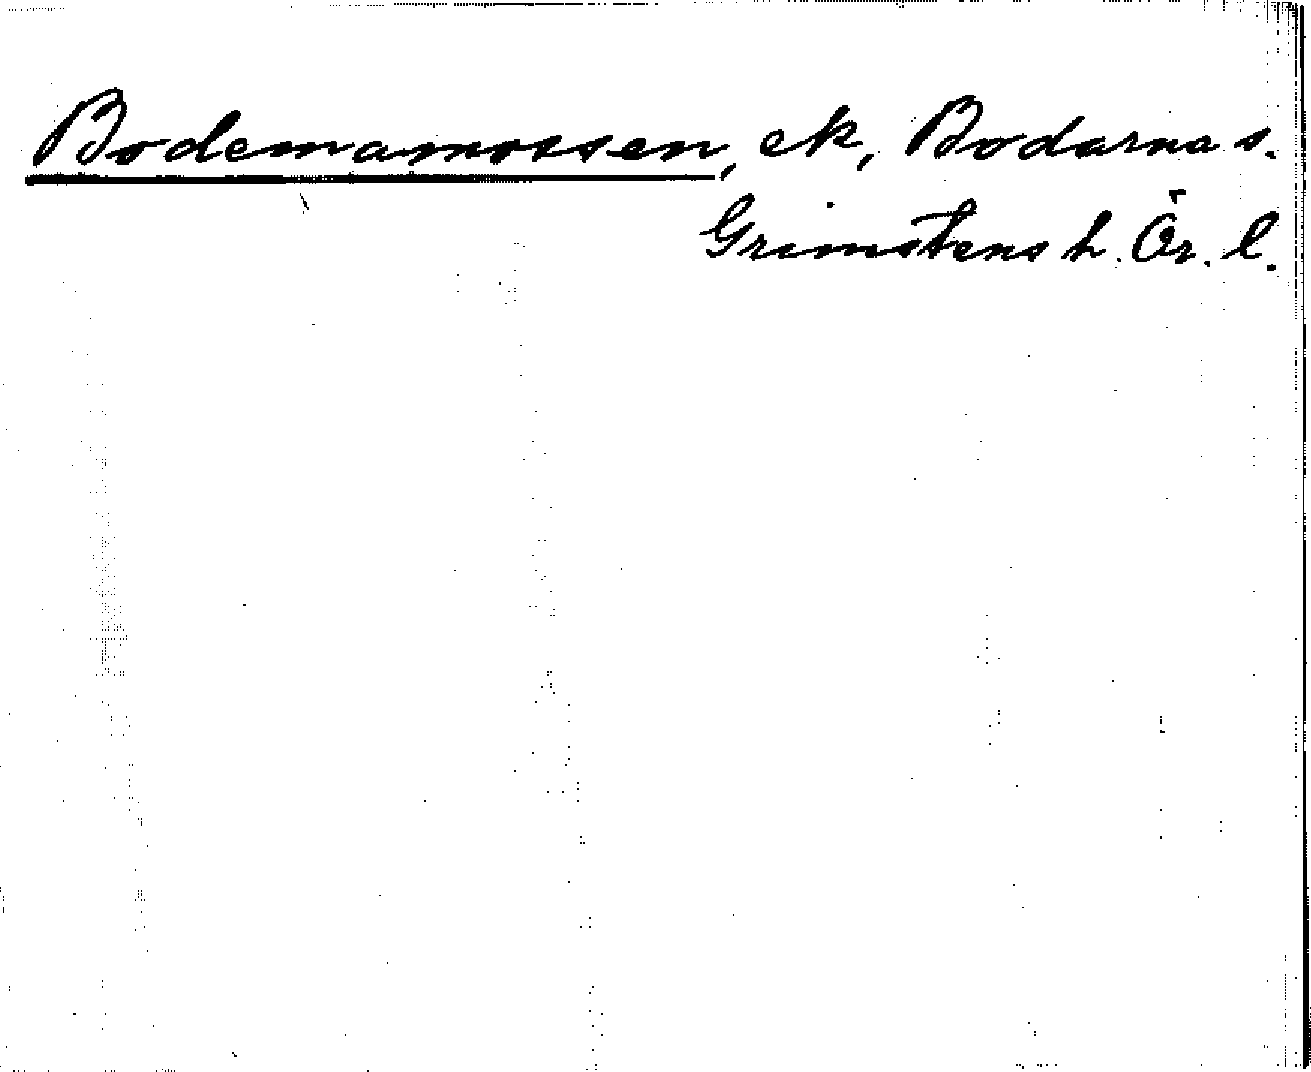 Bodemamossen, ek, Bodarna s.
Grimstens h. Ör. l.